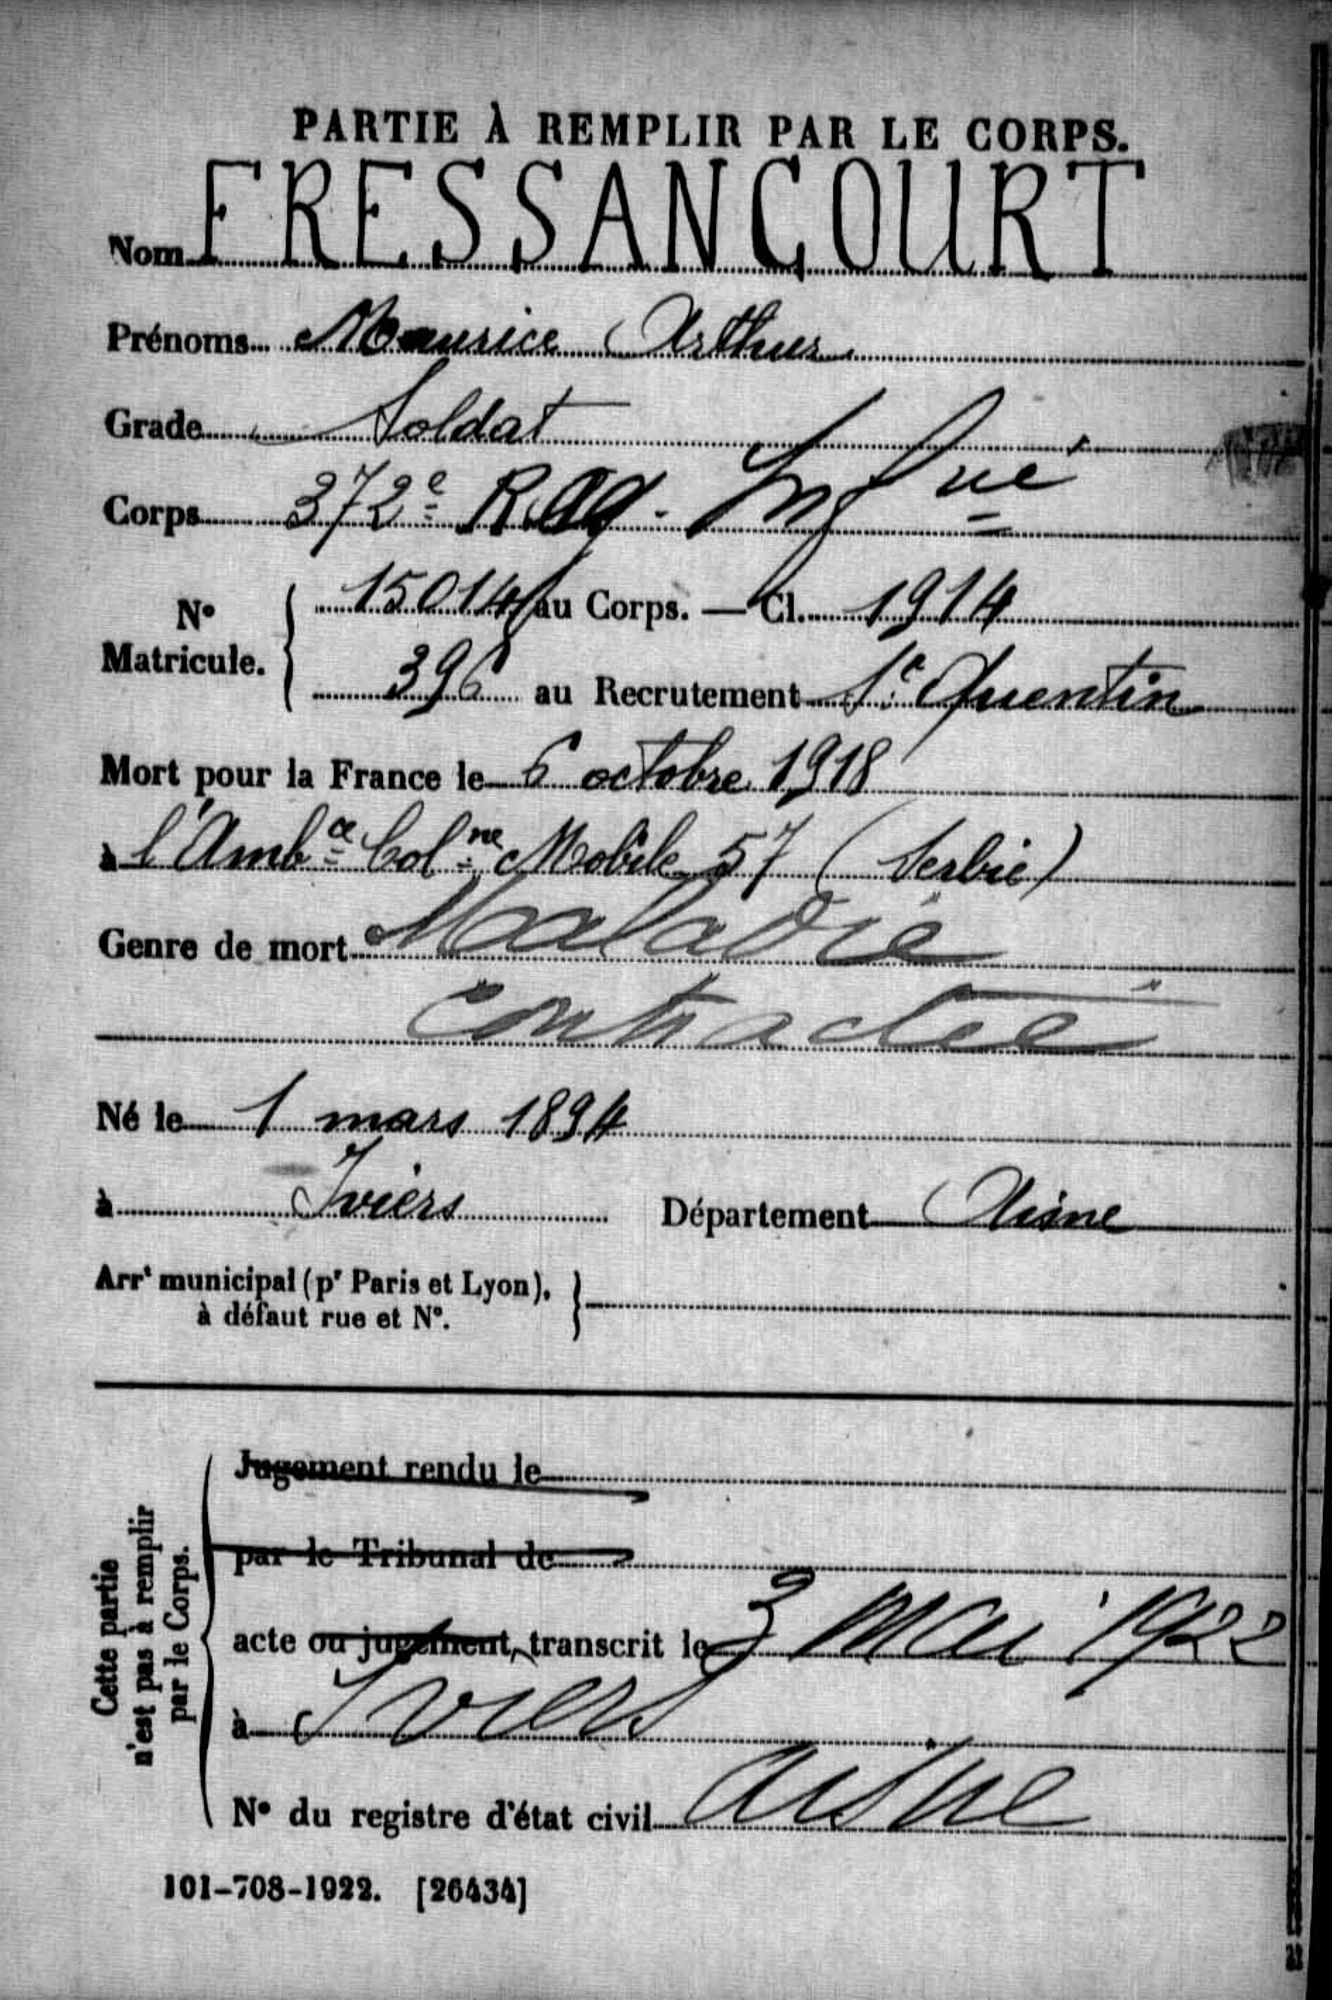 PARTIE À REMPLIR PAR LE CORPS.
Nom FRESSANCOURT
Prénoms Maurice Arthur
Grade Soldat
Corps 372e Rég. Infrie
No Matricule. 15014 au Corps. — Cl. 1914
396 au Recrutement St Quentin
Mort pour la France le 6 octobre 1918
à l'Ambce Colne Mobile 57 (Serbie)
Genre de mort Maladie
contractée
Né le 1 mars 1894
à Iviers Département Aisne
Arrt municipal (pr Paris et Lyon),
à défaut rue et No.
Cette partie
n'est pas à remplir
par le Corps.
Jugement rendu le
par le Tribunal de
acte ou jugement, transcrit le 3 Mai 1922
à Iviers
No du registre d'état civil Aisne
101-708-1922. [26434]